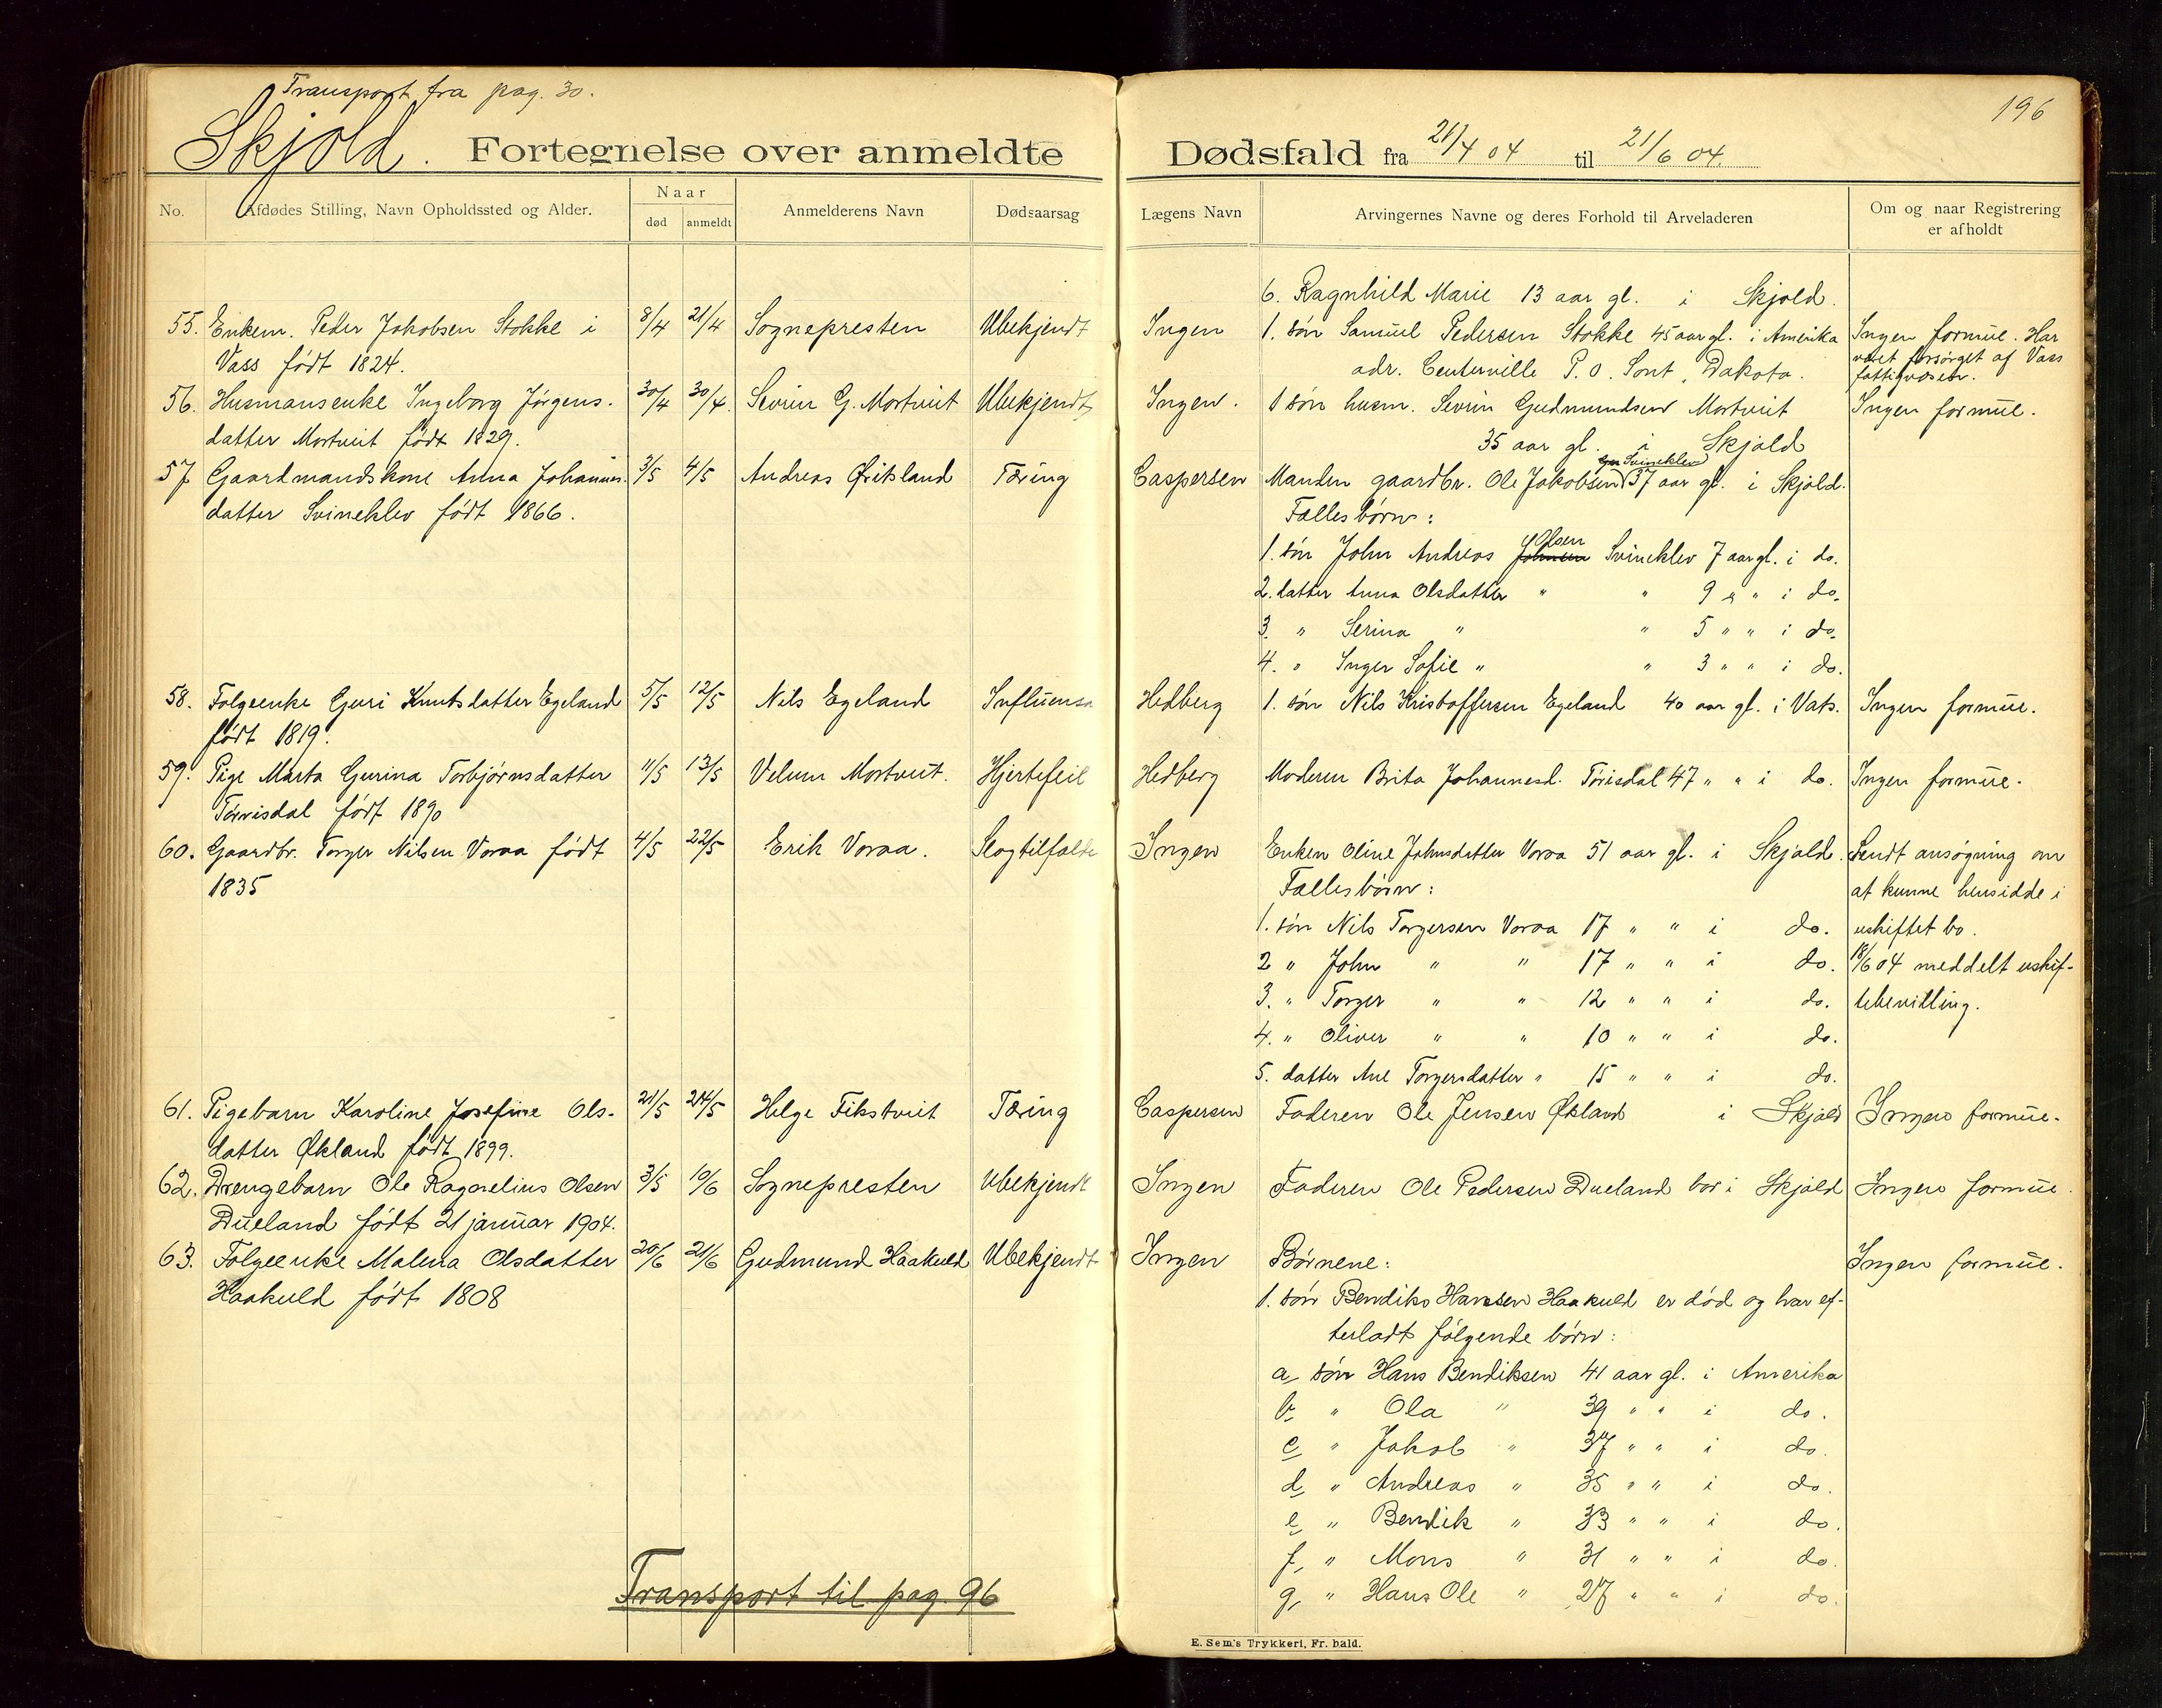 Transport fra pag. 30.
196
Skjold. Fortegnelse over anmeldte Dødsfald fra 21/4 04 til 21/6 04.
No.
Afdødes Stilling, Navn Opholdssted og Alder.
Naar
død
anmeldt
Anmelderens Navn
Dødsaarsag
Lægens Navn
Arvingernes Navne og deres Forhold til Arveladeren
Om og naar Registrering
er afholdt
6. Ragnhild Marie 13 aar gl. i Skjold.
55. Enkem. Peder Jakobsen Stokke i 8/4 21/4 Sognepresten Ubekjendt Ingen 1. søn Samuel Pedersen Stokke 45 aar gl. i Amerika Ingen formue. Har
Vass født 1824. adr. Centerville P.O. Sout. Dakota. været forsørget af Vass
fattigvæsen.
56. Husmansenke Ingeborg Jørgens- 30/4 30/4. Sevrin G. Mortveit Ubekjendt Ingen. 1 søn husm. Sevrin Gudmundsen Mortveit Ingen formue.
datter Mortveit født 1829. 35 aar gl. i Skjold
57 Gaardmandskone Anna Johannes- 3/5 4/5 Andreas Øritsland Tæring Caspersen Manden gaardbr. Ole Jakobsen Svineklev 37 aar gl. i Skjold.
datter Svineklev født 1866. Fællesbørn:
1. søn John Andreas Johnsen Olsen Svineklev 7 aar gl. i do.
2. datter Anna Olsdatter " " 9 " " i do.
3. " Serina " " 5 " " i do.
4. " Inger Sofie " " 3 " " i do.
58. Folgeenke Guri Knutsdatter Egeland 5/5 12/5 Nils Egeland Influensa Hedberg 1. søn Nils Kristoffersen Egeland 40 aar gl. i Vats. Ingen formue.
født 1819.
59. Pige Marta Gurina Torbjørnsdatter 11/5 13/5 Velum Mortveit. Hjertefeil Hedberg Moderen Brita Johannesd. Tørisdal 47 " " i do. Ingen formue.
Tørrisdal født 1890
60. Gaardbr. Torger Nilsen Voraa født 4/5 22/5 Erik Voraa. Slagtilfælde Ingen Enken Oline Johnsdatter Voraa 51 aar gl. i Skjold. Sendt ansøgning om
1835 Fællesbørn: at kunne hensidde i
1. søn Nils Torgersen Voraa 17 " " i do. uskiftet bo.
2 " John " " 17 " " i do. 18/6 04 meddelt uskif-
3. " Torger " " 12 " " i do. tebevilling.
4. " Oliver " " 10 " " i do.
5. datter Ane Torgersdatter " 15 " " i do.
61. Pigebarn Karoline Josefine Ols- 21/5 24/5 Helge Fikstveit Tæring Caspersen Faderen Ole Jensen Økland i Skjold Ingen formue.
datter Økland født 1899.
62. Drengebarn Ole Ragnelius Olsen 3/5 10/6 Sognepresten Ubekjendt Ingen Faderen Ole Pedersen Dueland bor i Skjold Ingen formue.
Dueland født 21 januar 1904.
63. Folgeenke Malena Olsdatter 20/6 21/6 Gudmund Haakuld Ubekjendt Ingen Børnene: Ingen formue.
Haakuld født 1808 1. søn Bendiks Hansen Haakuld er død og har ef-
terladt følgende børn:
a, søn Hans Bendiksen 41 aar gl. i Amerika
b, " Ola " 39 " " i do.
c, " Jakob " 37 " " i do.
d, " Andreas " 35 " " i do.
e, " Bendik " 33 " " i do.
f, " Mons " 31 " " i do.
g, " Hans Ole " 27 " " i do.
Transport til pag. 96
E. Sem's Trykkeri, Fr.hald.